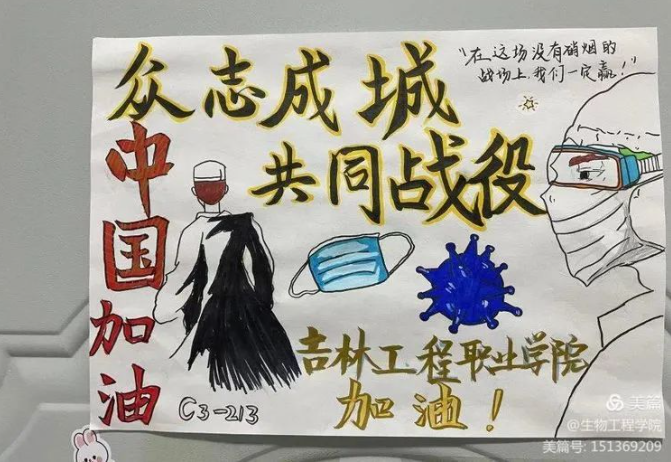 众志成城
共同战役
"在这场没有硝烟的
战场上,我们一定赢!"
中国加油
吉林工程职业学院
加油!
C3-213
美篇
@生物工程学院
美篇号: 151369209